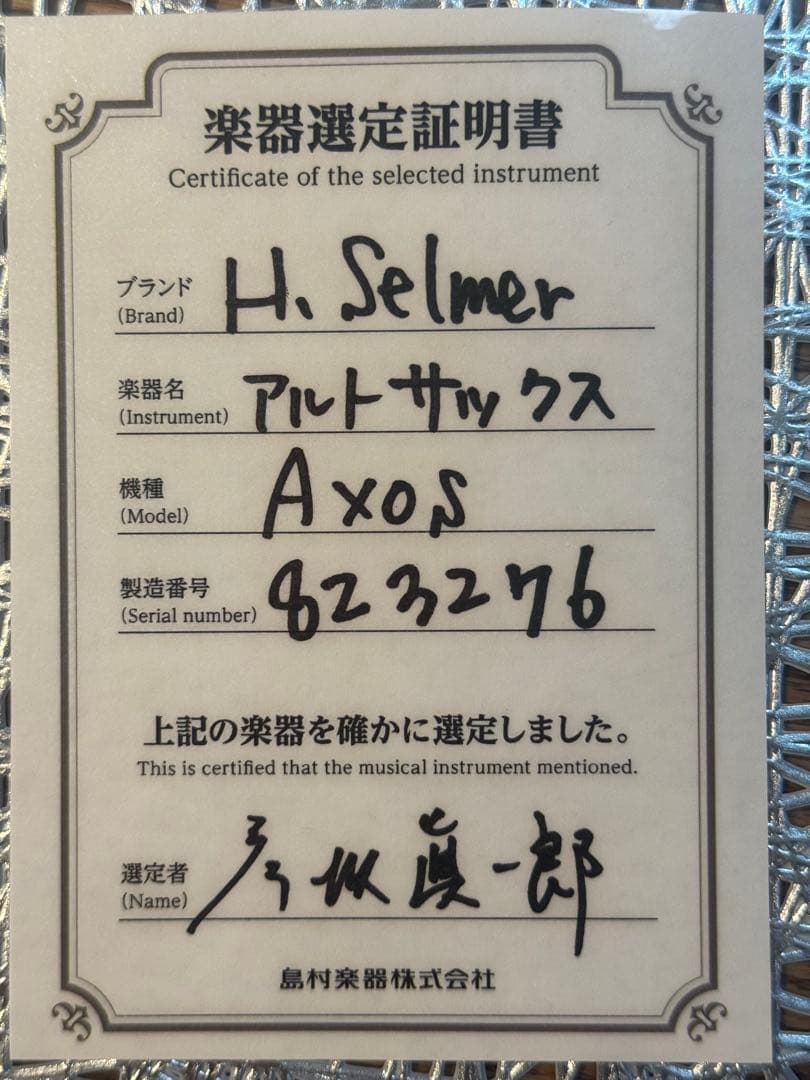 楽器選定証明書
Certificate of the selected instrument
ブランド H. Selmer
(Brand)
楽器名 アルトサックス
(Instrument)
機種 Axos
(Model)
製造番号 823276
(Serial number)
上記の楽器を確かに選定しました。
This is certified that the musical instrument mentioned.
選定者 彦坂眞一郎
(Name)
島村楽器株式会社